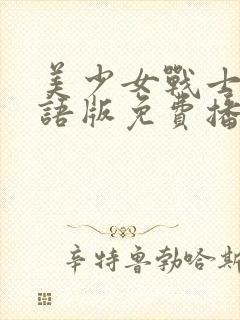 美少女戰士
語版免費播
辛特魯勃哈斯